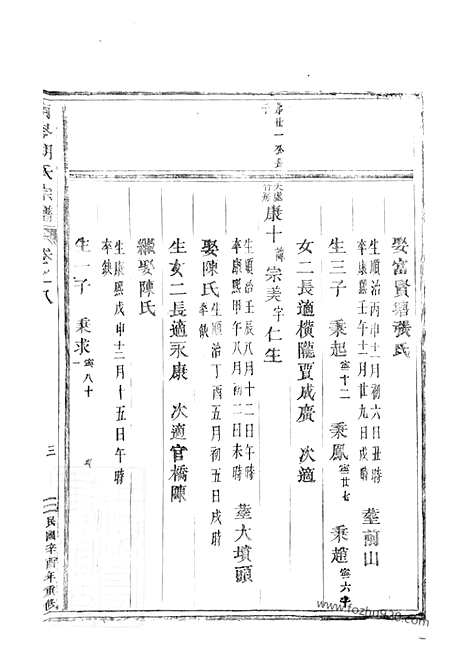 娶富賢塘張氏
生順治丙申十二月初六日丑時
卒康熙壬午十一月廿九日戌時 塟前山
生三子 秉起寧十二 秉鳳寧廿七 秉趙寧六十
女二長適橫隴賈成廣 次適
康十諱宗美字仁生
生順治壬辰八月十二日午時
卒康熙甲午八月初二日未時 塟大墳頭
娶陳氏生順治丁酉五月初五日戌時
卒缺
生女二長適永康 次適官橋陳
繼娶陳氏
生康熙戊申十二月十五日午時
卒缺
生一子 秉求寧八十一
胡氏宗譜
卷之八
三
民國辛酉年重修
www.fozhu920.com